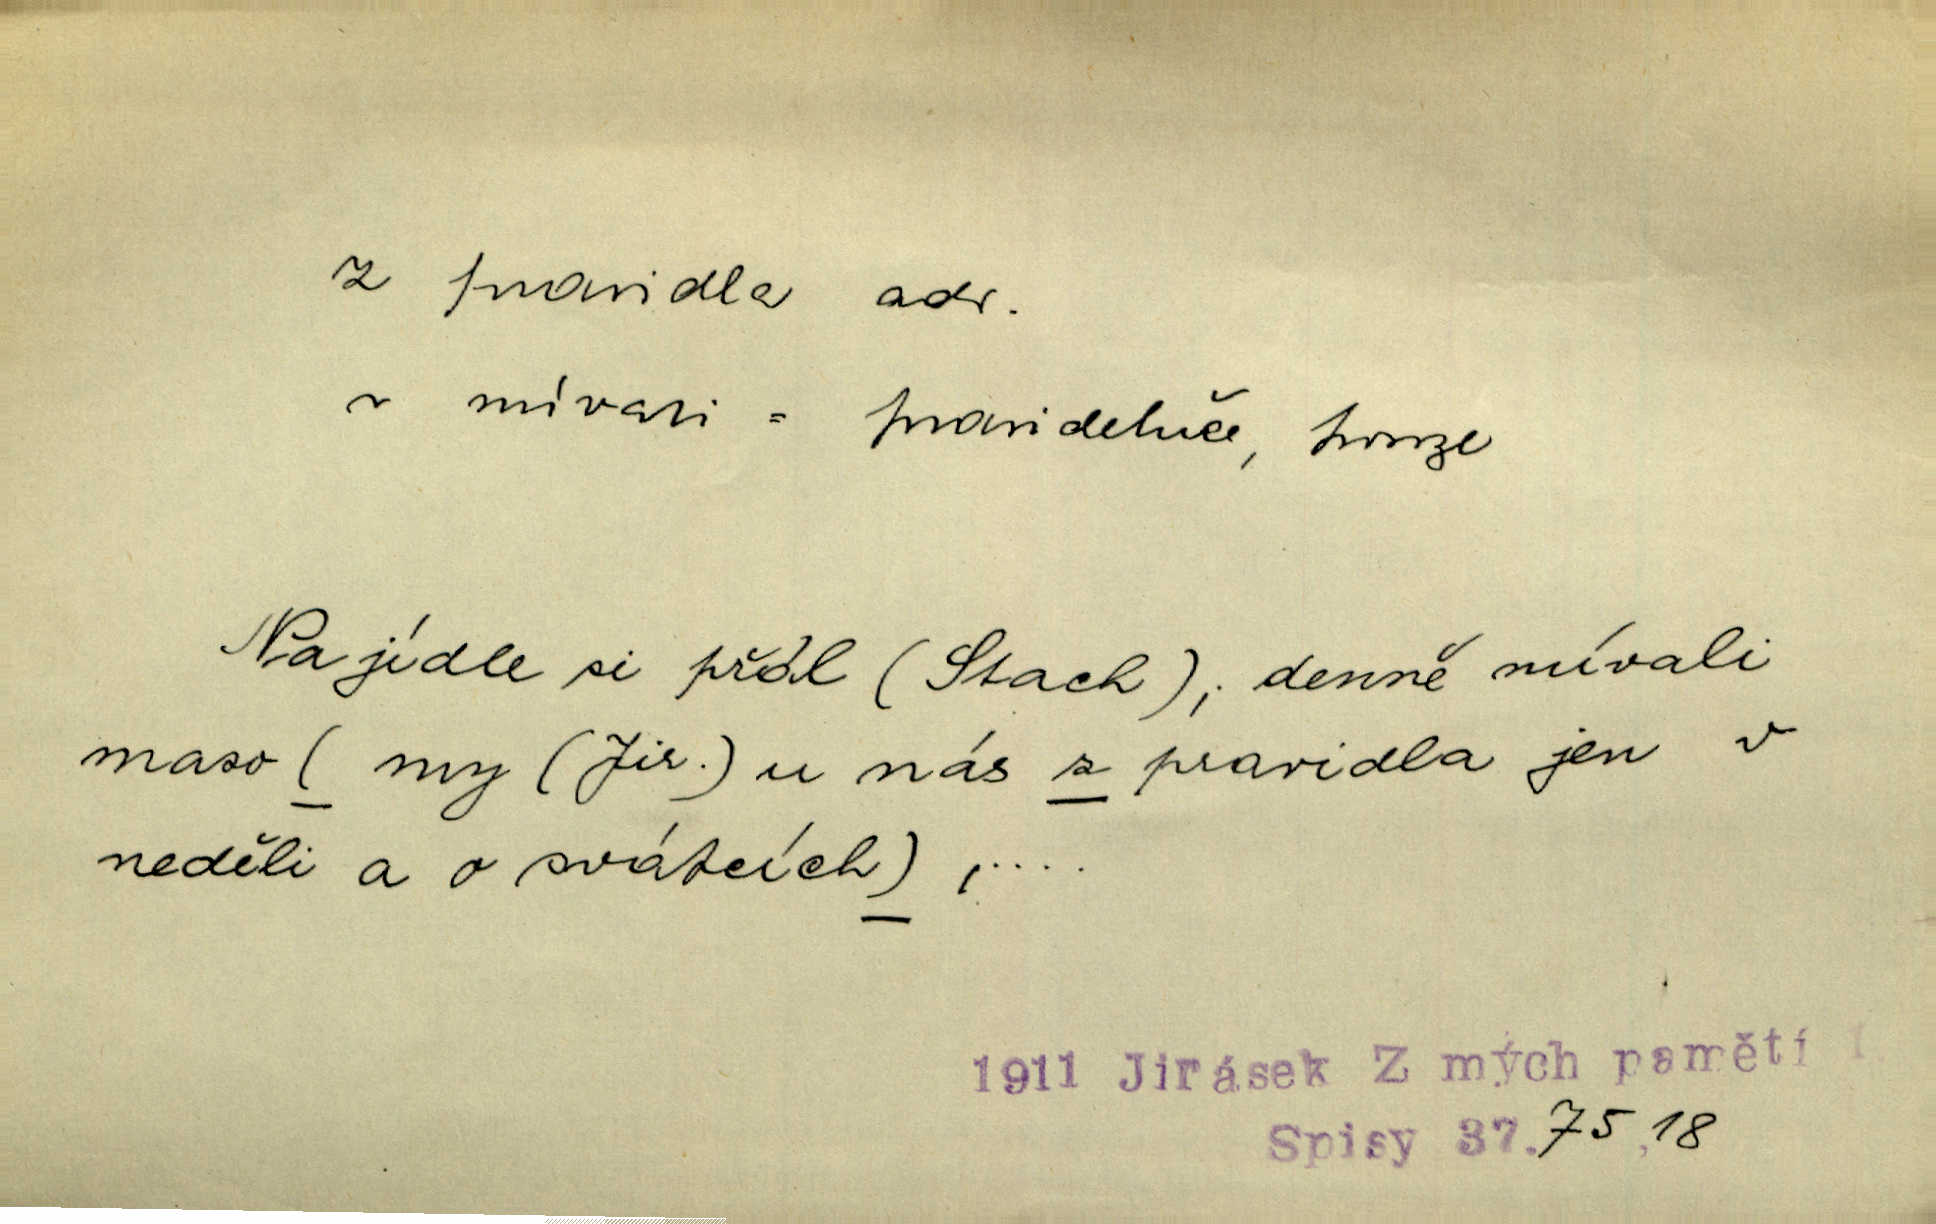 z pravidla adv.
~ mívati = pravidelněe, pouze
Na jídle si přál (Stach), denně mívali
maso ( my (Jir.) u nás z pravidla jen v
neděli a o svátcích) , ....
1911 Jirásek Z mých pamětí I.
Spisy 37.75,18